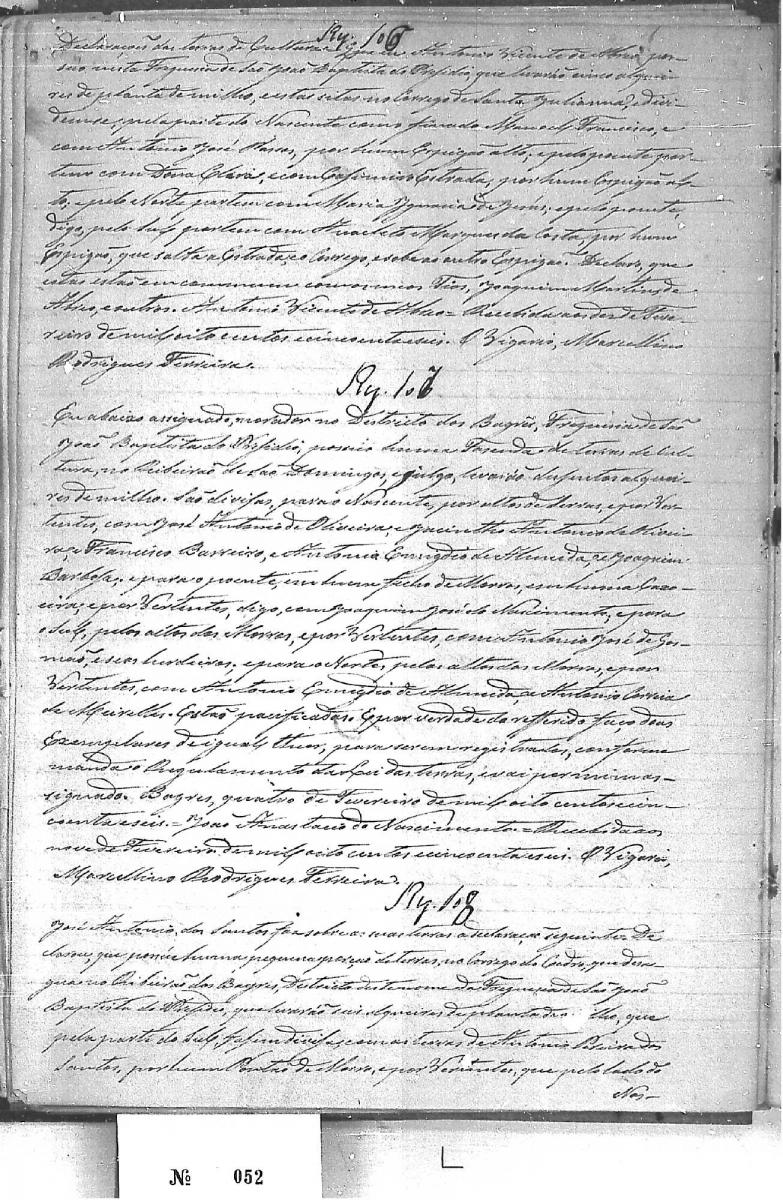 Rg. 106
Declarações das terras de Cultura que eu Antonio Vicente de Abreo, pos-
suo nesta Freguesia de São João Baptista do Presidio, que levarão cinco alquei-
res de planta de milho, e estas sitas no Corrego de Santa Julianna, e divi-
dem-se, pela parte do Nascente com o finado Manoel Francisco, e
com Antonio José Passos, por hum Espigão alto, e pelo poente par-
tem com Dona Clara, e com Casimiro Estrada, por hum Espigão al-
to, e pelo Norte partem com Maria Ignacia de Jesus, e pelo poente,
digo, pelo Sul, partem com Anacleto Marques da Costa, por hum
Espigão, que salta a Estrada, e o Corrego, e sobe ao outro Espigão. Declaro, que
estas estão em commum com os meus Tios, Joaquim Martins de
Abreo, e outros. Antonio Vicente de Abreo = Recebida aos dois de Feve-
reiro de mil oito centos e cincoenta e seis. O Vigario, Marcellino
Rodrigues Ferreira.
Rg. 107
Eu abaixo assignado, morador no Districto dos Bagres, Freguesia de São
João Baptista do Presidio, possuo huma Fazenda de terras de Cul-
tura, no Ribeirão de São Domingos, e julgo, levarão duzentos alquei-
res de milho. São divisas, para o Nascente, por altos de Serras, e por Ver-
tentes, com José Antonio de Oliveira, e Jacintho Antonio de Olivei-
ra, e Francisco Barreiro, e Antonio Emigdio de Almeida, e Joaquim
Barbosa; e para o poente, em hum fecho de Morros, em huma Caxo-
eira, e por Vertentes, digo, com Joaquim José do Nascimento, e para
o Sul, pelos altos dos Morros, e por Vertentes, com Antonio José de Gus-
mão, e seos herdeiros. e para o Norte, pelos altos dos Morros, e por
Vertentes, com Antonio Emigdio de Almeida, e Antonio Correia
de Meirelles. Estão pacificadas. E por verdade do refferido faço dous
Exemplares de igual theor, para serem registrados, conforme
manda o Regulamento da Lei das terras, e vai por mim as-
signado. Bagres, quatro de Fevereiro de mil oito centos e cin-
coenta e seis. = João Anastacio do Nascimento. = Recebida aos
nove de Fevereiro de mil oito centos e cincoenta e seis. O Vigario,
Marcellino Rodrigues Ferreira.
Rg. 108
José Antonio dos Santos faz sobre as suas terras a declaração seguinte. De-
claro, que possúe huma pequena porção de terras, no Corrego do Cedro, que desa-
gua no Ribeirão dos Bagres, Districto deste nome da Freguezia de São João
Baptista do Presidio, que levarão seis alqueires de planta de lho, que
pela parte do Sul, fasem divisa, com as terras de Antonio Pereira dos
Santos, por hum Pontão de Morro, e por Vertentes, que pelo lado do
Nas-
№ 052